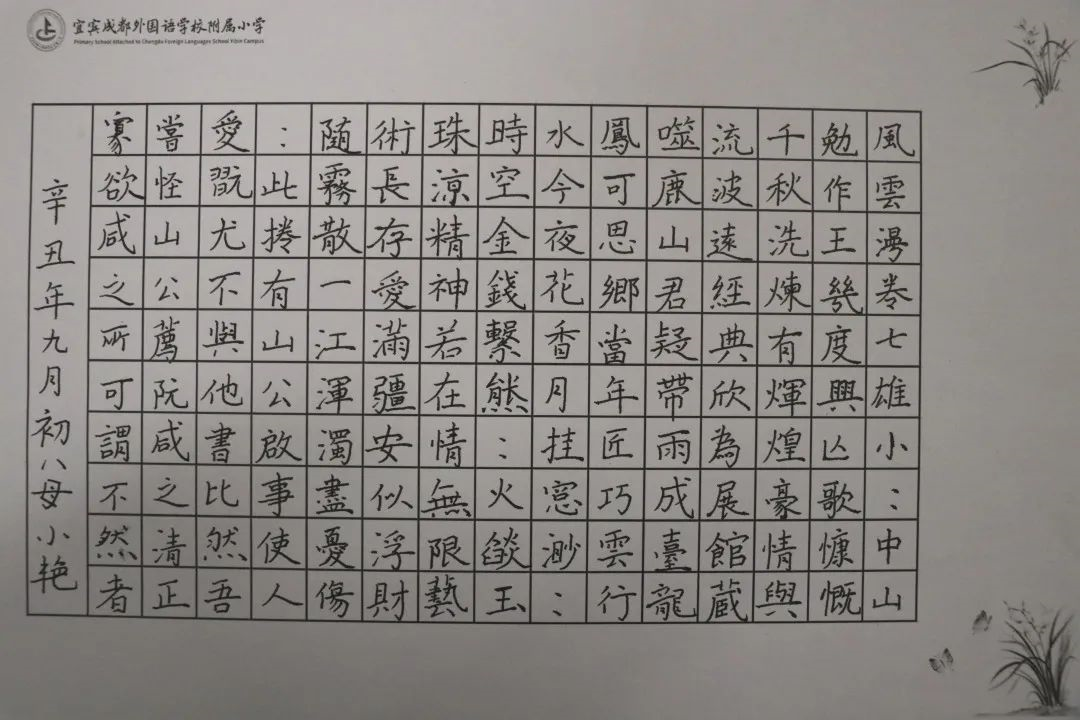 宜宾成都外国语学校附属小学
Primary School Attached to Chengdu Foreign Languages School Yibin Campus
風雲漫卷七雄小：中山
勉作王幾度興亾歌慷慨
千秋洗煉有輝煌豪情與
流波遠經典欣為展館蔵
噬鹿山君疑帶雨成臺龍
鳳可思鄉當年匠巧雲行
水今夜花香月挂窓渺：
時空金錢繫熊：火燄玉
珠涼精神若在情無限藝
術長存愛滿疆安似浮財
随霧散一江渾濁盡憂傷
：此捲有山公啟事使人
愛翫尤不與他書比然吾
嘗怪山公薦阮咸之清正
寡欲咸之所可謂不然者
辛丑年九月初八母小艳